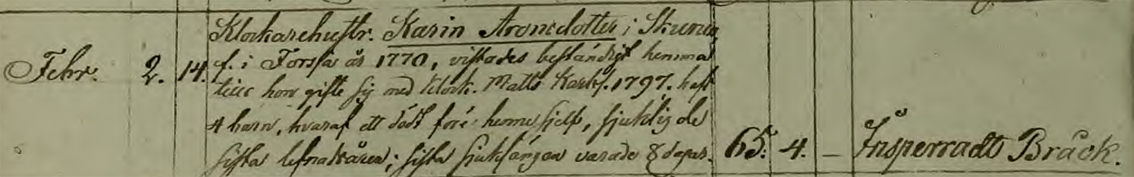 Klockarehustr. Karin Aronsdotter i Skurna
Febr. 2. 14. f. i Forssa år 1770, vistades beständigt hemma
till hon gifte sig med klock. Matts 1797. haft
4 barn, hvaraf ett dödt före henne sjelf, sjuklig de
sista lefnadsåren; sista sjuksängen varade 8 dagar. 65. 4. – Insperradt Bråck.